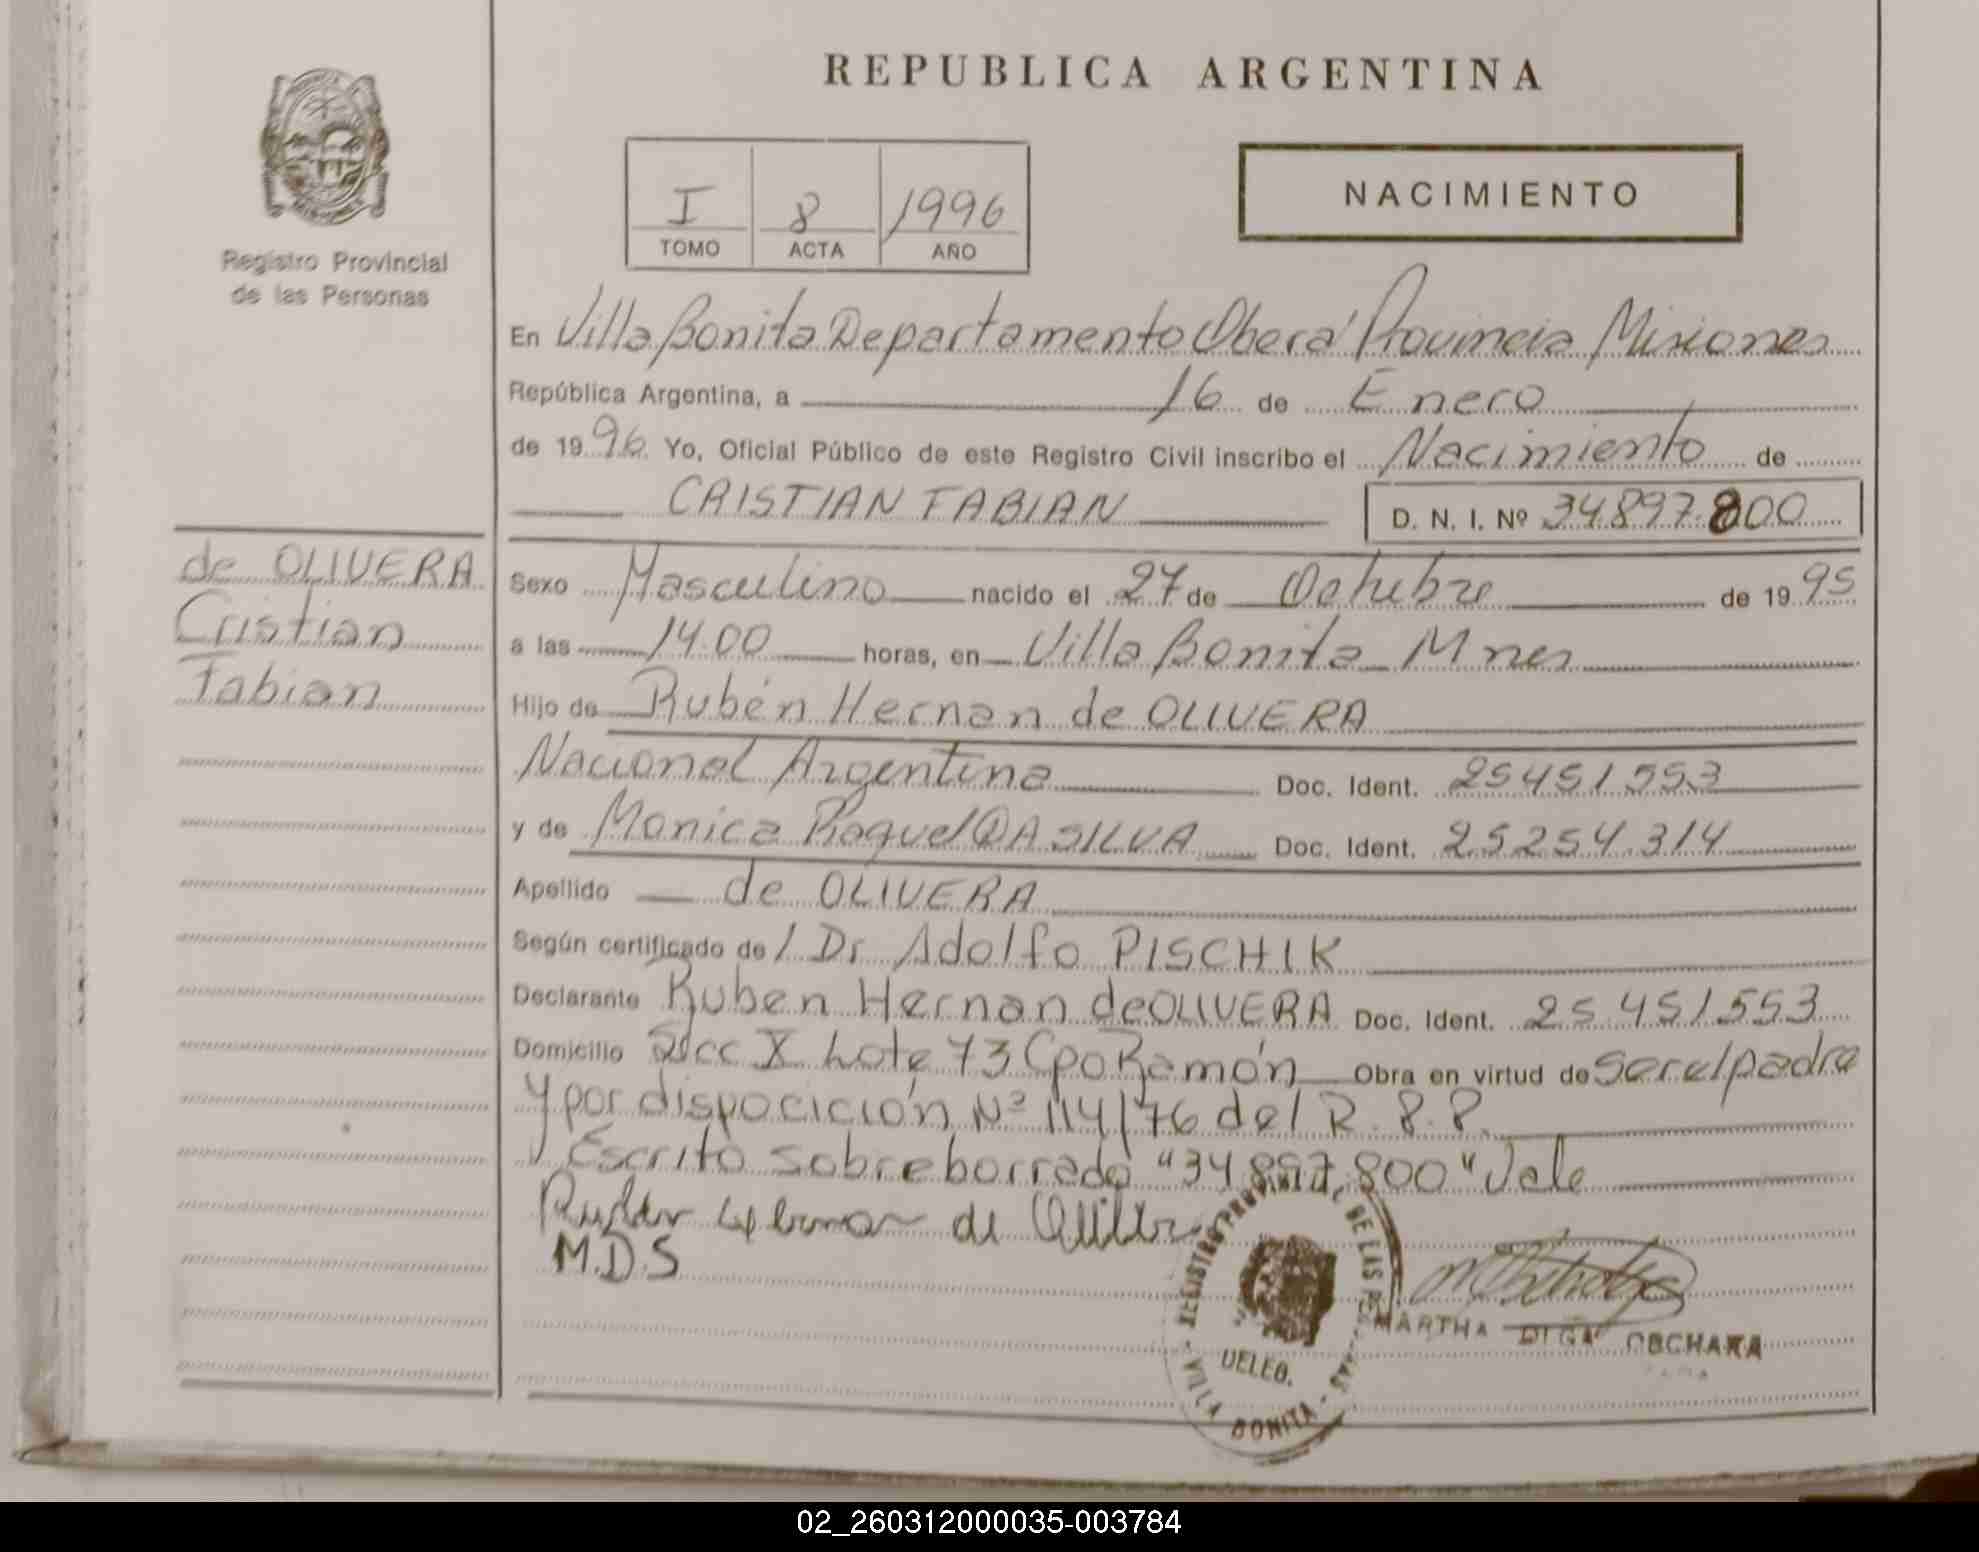 REPUBLICA ARGENTINA
Registro Provincial
de las Personas
I 8 1996
TOMO ACTA AÑO
NACIMIENTO
En Villa Bonita Departamento Oberá Provincia Misiones
República Argentina, a 16 de Enero
de 1996 Yo, Oficial Público de este Registro Civil inscribo el Nacimiento de
CRISTIAN FABIAN D. N. I. Nº 34.897.800
de OLIVERA
Cristian
Fabian
Sexo Masculino nacido el 27 de Octubre de 1995
a las 14.00 horas, en Villa Bonita Mnes
Hijo de Rubén Hernan de OLIVERA
Nacional Argentina Doc. Ident. 25.451.553
y de Monica Raquel DA SILVA Doc. Ident. 25.254.314
Apellido de OLIVERA
Según certificado de / Dr Adolfo PISCHIK
Declarante Ruben Hernan de OLIVERA Doc. Ident. 25.451.553
Domicilio Secc X Lote 73 Cpo Ramón Obra en virtud de ser el padre
y por disposición Nº 114/76 del R.P.P.
Escrito sobreborrado "34.897.800" Vale
de
M.D.S
REGISTRO PROVINCIAL DE LAS PERSONAS
DELEG.
VILLA BONITA
MARTHA OLGA
02_260312000035-003784